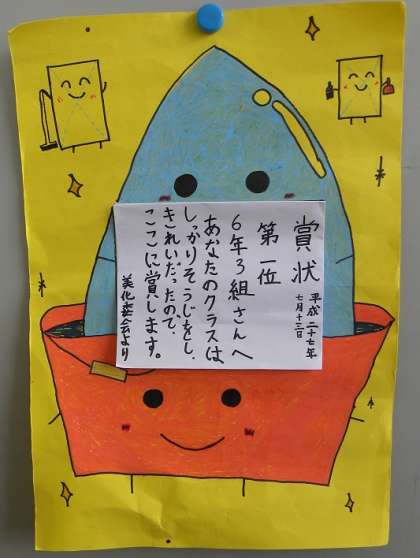 賞状
平成二十七年
七月十三日
第一位
6年3組さんへ
あなたのクラスは
しっかりそうじをし、
きれいだったので、
ここに賞します。
美化委会より